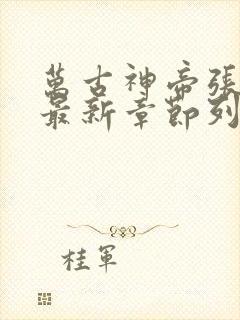 萬古神帝張
最新章節列
桂軍